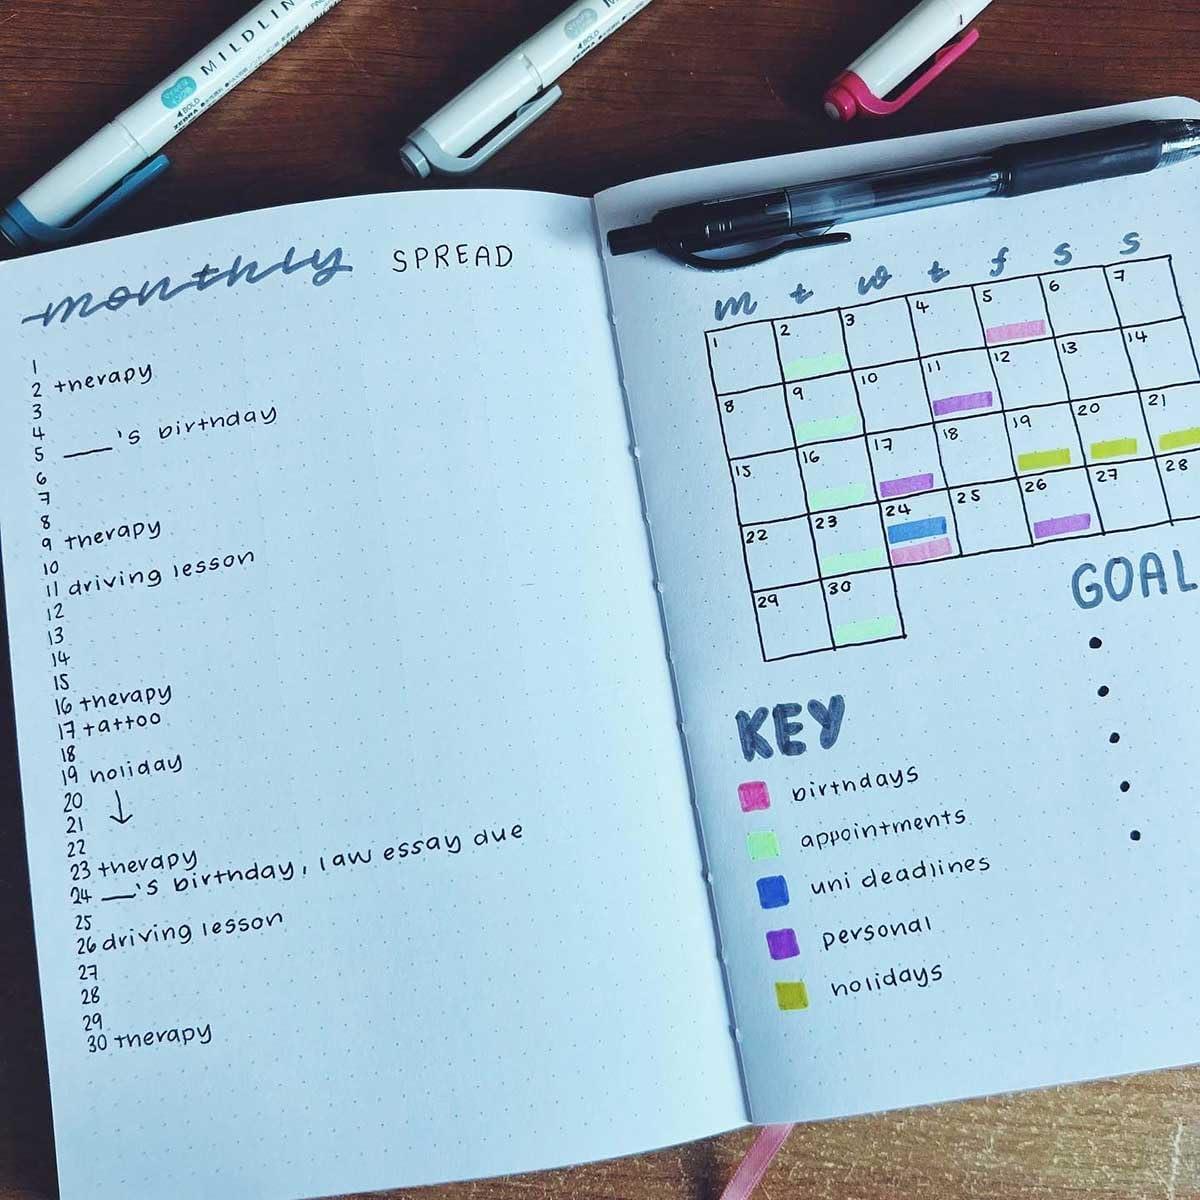 MILDLIN
4 BOLD
ZEBRA
4 BOLD
monthly SPREAD
1
2 therapy
3
4
5 ___'s birthday
6
7
8
9 therapy
10
11 driving lesson
12
13
14
15
16 therapy
17 tattoo
18
19 holiday
20
21
22
23 therapy
24 __'s birthday, law essay due
25
26 driving lesson
27
28
29
30 therapy
m t w t f s s
1 2 3 4 5 6 7
8 9 10 11 12 13 14
15 16 17 18 19 20 21
22 23 24 25 26 27 28
29 30
GOAL
KEY
birthdays
appointments
uni deadlines
personal
holidays